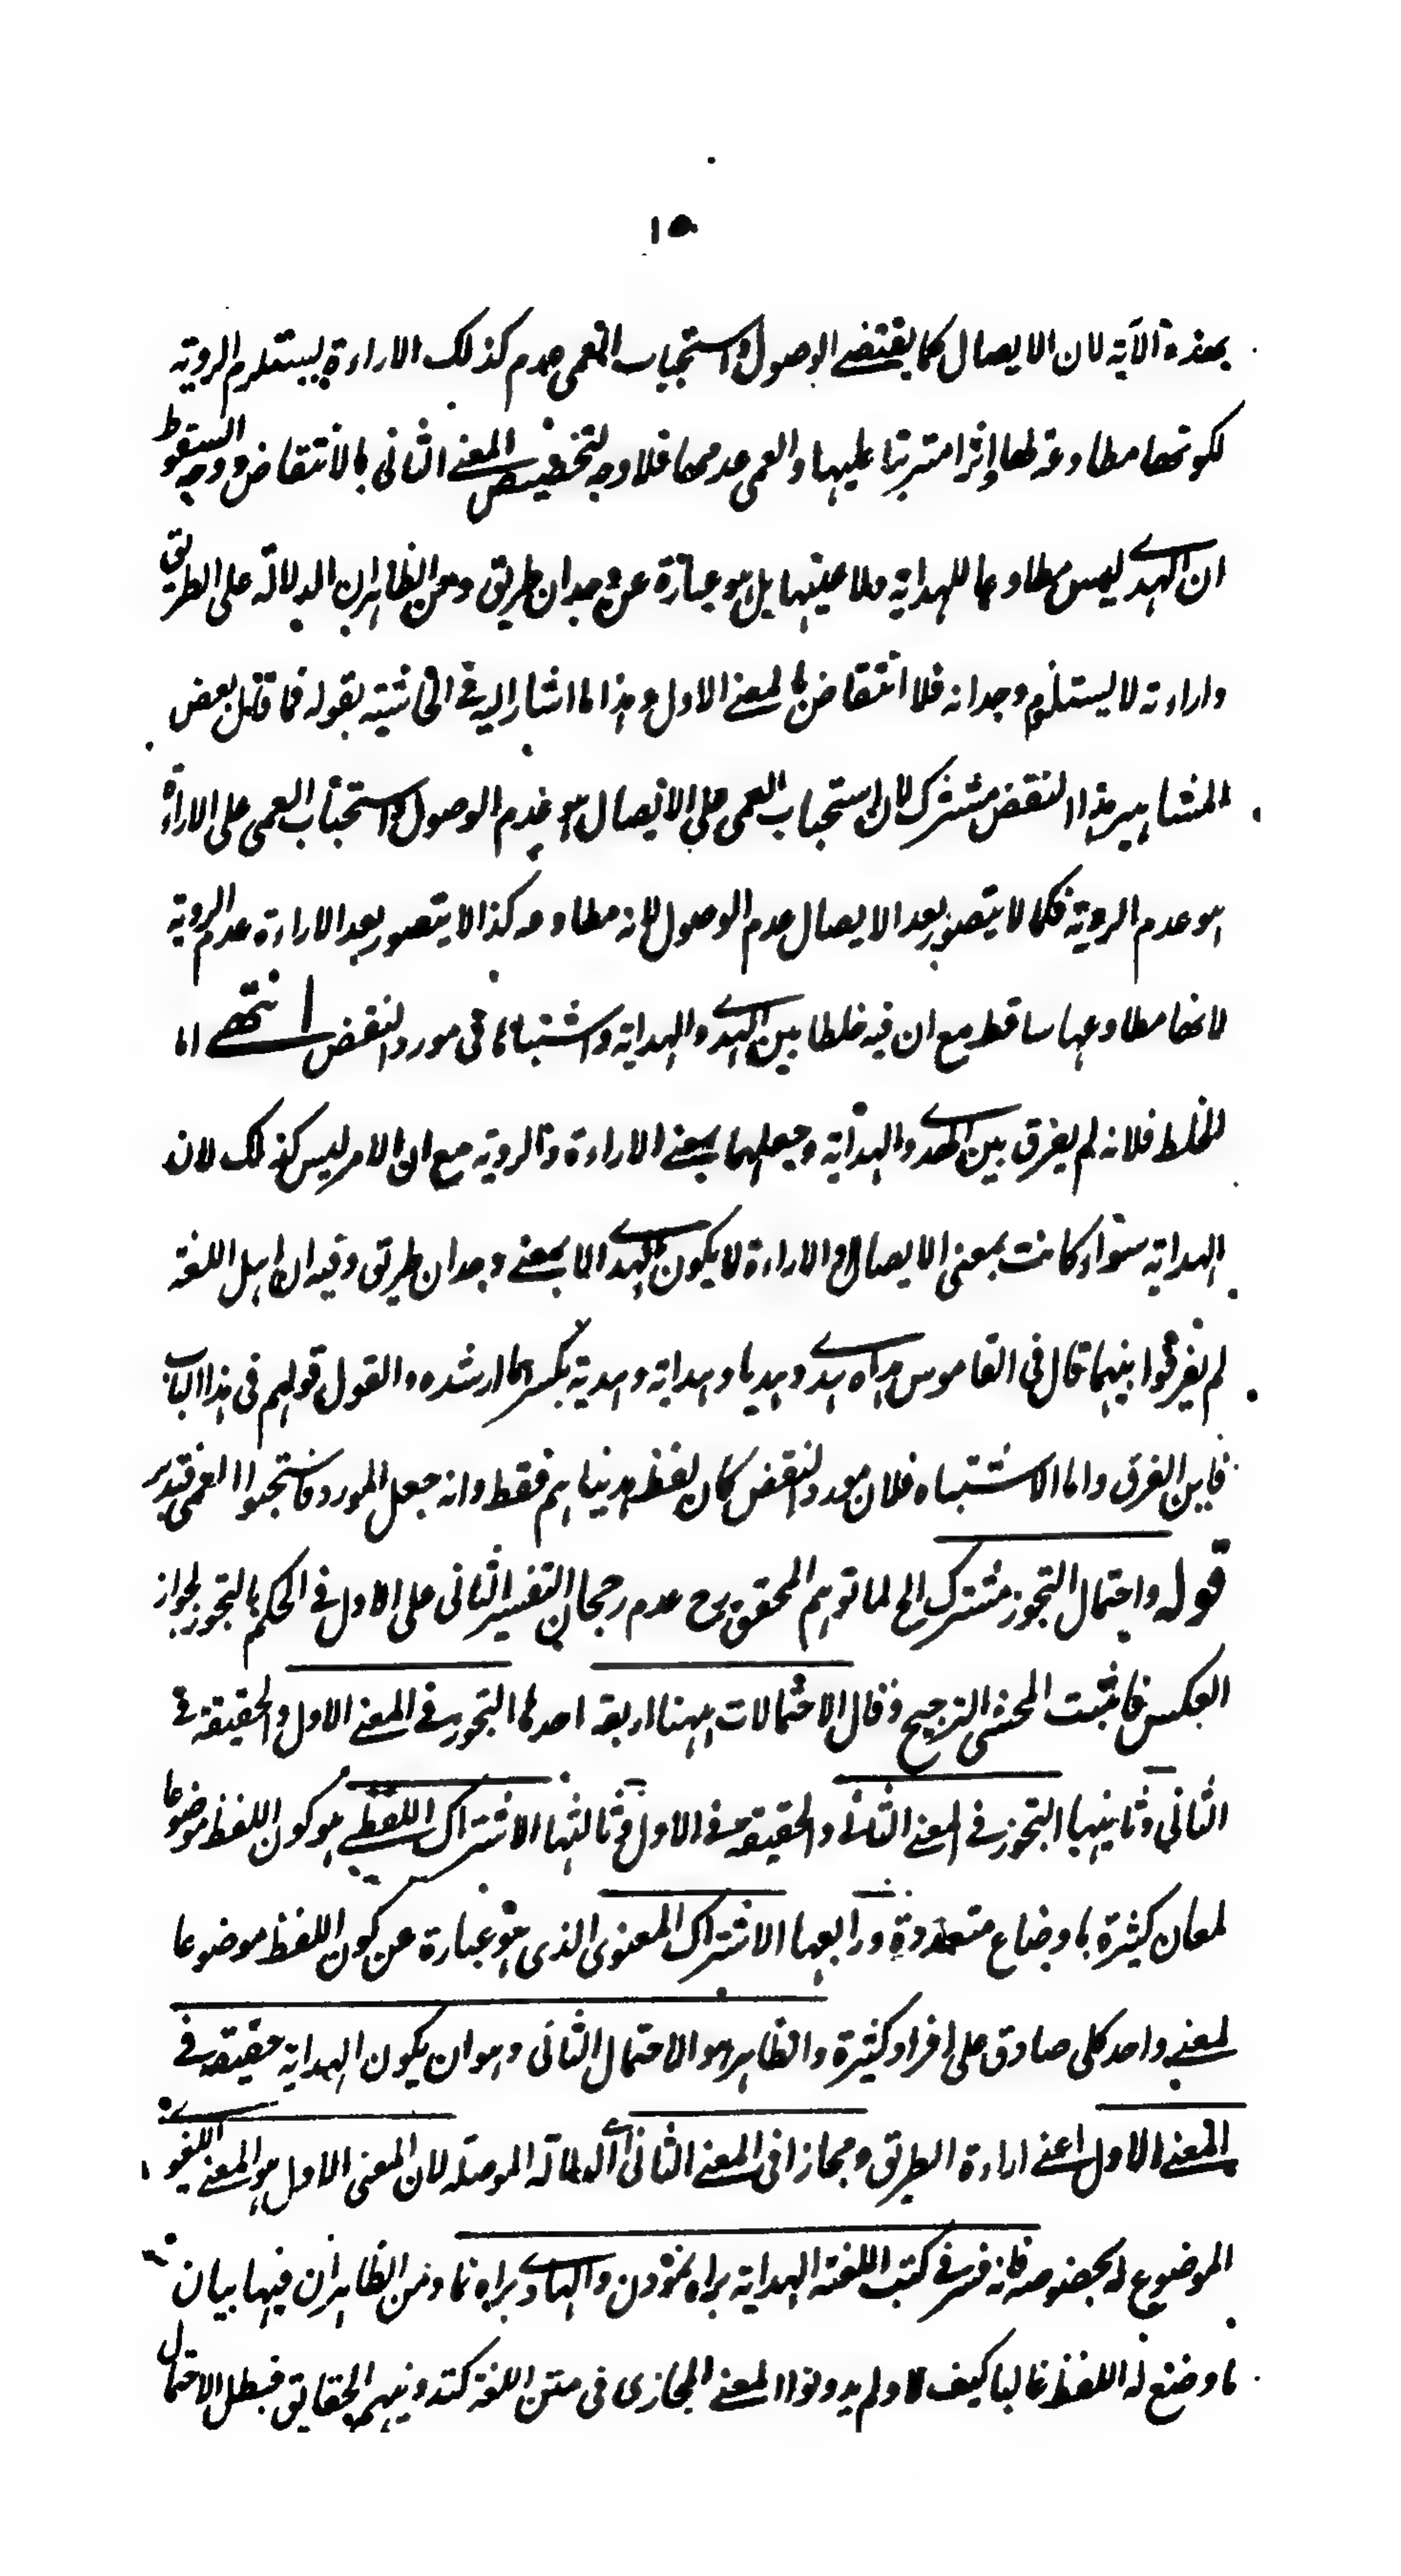 ١٥
بهذه الآية لان الايصال كما يقتضے الوصول واستجباب العمى عدم كذلك الاراءة يستلزم الروية
لكونها مطاوعة لها واثرا مترتبا عليها والعمى عدمها فلا وجه لتخصيص المعنے الثانى بالانتقاض ووجه السقوط
ان الهدے ليس مطاوعا للهداية ولا عينها بل هو عبارة عن وجدان طريق ومن الظاهر ان الدلالة على الطريق
واراءته لا يستلزم وجدانه فلا انتقاض بالمعنے الاول وهذا ما اشار اليه فے الحاشية بقوله فما قال بعض
المشاهير هذا النقض مشترك لان استحباب العمى على الايصال هو عدم الوصول واستحباب العمى على الاراءة
هو عدم الروية فكما لا يتصور بعد الايصال عدم الوصول لانه مطاوعه كذا لا يتصور بعد الاراءة عدم الروية
لانها مطاوعها ساقط مع ان فيه خلطا بين الهدے والهداية واشتباها فى مورد النقض انتهے اما
الخلط فلانه لم يفرق بين الهدے والهداية وجعلهما بمعنے الاراءة والروية مع ان الامر ليس كذلك لان
الهداية سواء كانت بمعنى الايصال او الاراءة لا يكون الهدے الا بمعنے وجدان طريق وفيه ان اهل اللغة
لم يفرقوا بينهما قال فى القاموس هداه هدے وهديا وهداية وهدية بكسرهما ارشده والقول قولهم فى هذا الباب
فاين الفرق واما الاشتباه فلان مورد النقض كان لفظ هديناهم فقط وانه جعل المورد فاستحبوا العمى فتدبر
قوله واحتمال التجوز مشترك الخ لما توهم المحقق رح عدم رجحان التفسير الثانى على الاول فے الحكم بالتجوز لجواز
العكس فاثبت المحشى الترجيح وقال الاحتمالات ههنا اربعة احدها التجوز فے المعنے الاول والحقيقة فے
الثانى وثانيها التجوز فے المعنے الثانے والحقيقة فے الاول وثالثها الاشتراك اللفظے هو كون اللفظ موضوعا
لمعان كثيرة باوضاع متعددة ورابعها الاشتراك المعنوى الذى هو عبارة عن كون اللفظ موضوعا
لمعنے واحد كلى صادق على افراد كثيرة والظاهر هو الاحتمال الثانى وهو ان يكون الهداية حقيقة فے
المعنے الاول اعنے اراءة الطريق ومجازا فى المعنے الثانى اے الدلالة الموصلة لان المعنى الاول هو المعنے اللغوے
الموضوع له بخصوصه فانه فسر فے كتب اللغة الهداية براه نمودن والهادے براه نما ومن الظاهر ان فيها بيان
ما وضع له اللفظ غالبا كيف لا ولم يدونوا المعنے المجازى فى متن اللغة كتدوينهم الحقايق فبطل الاحتمال